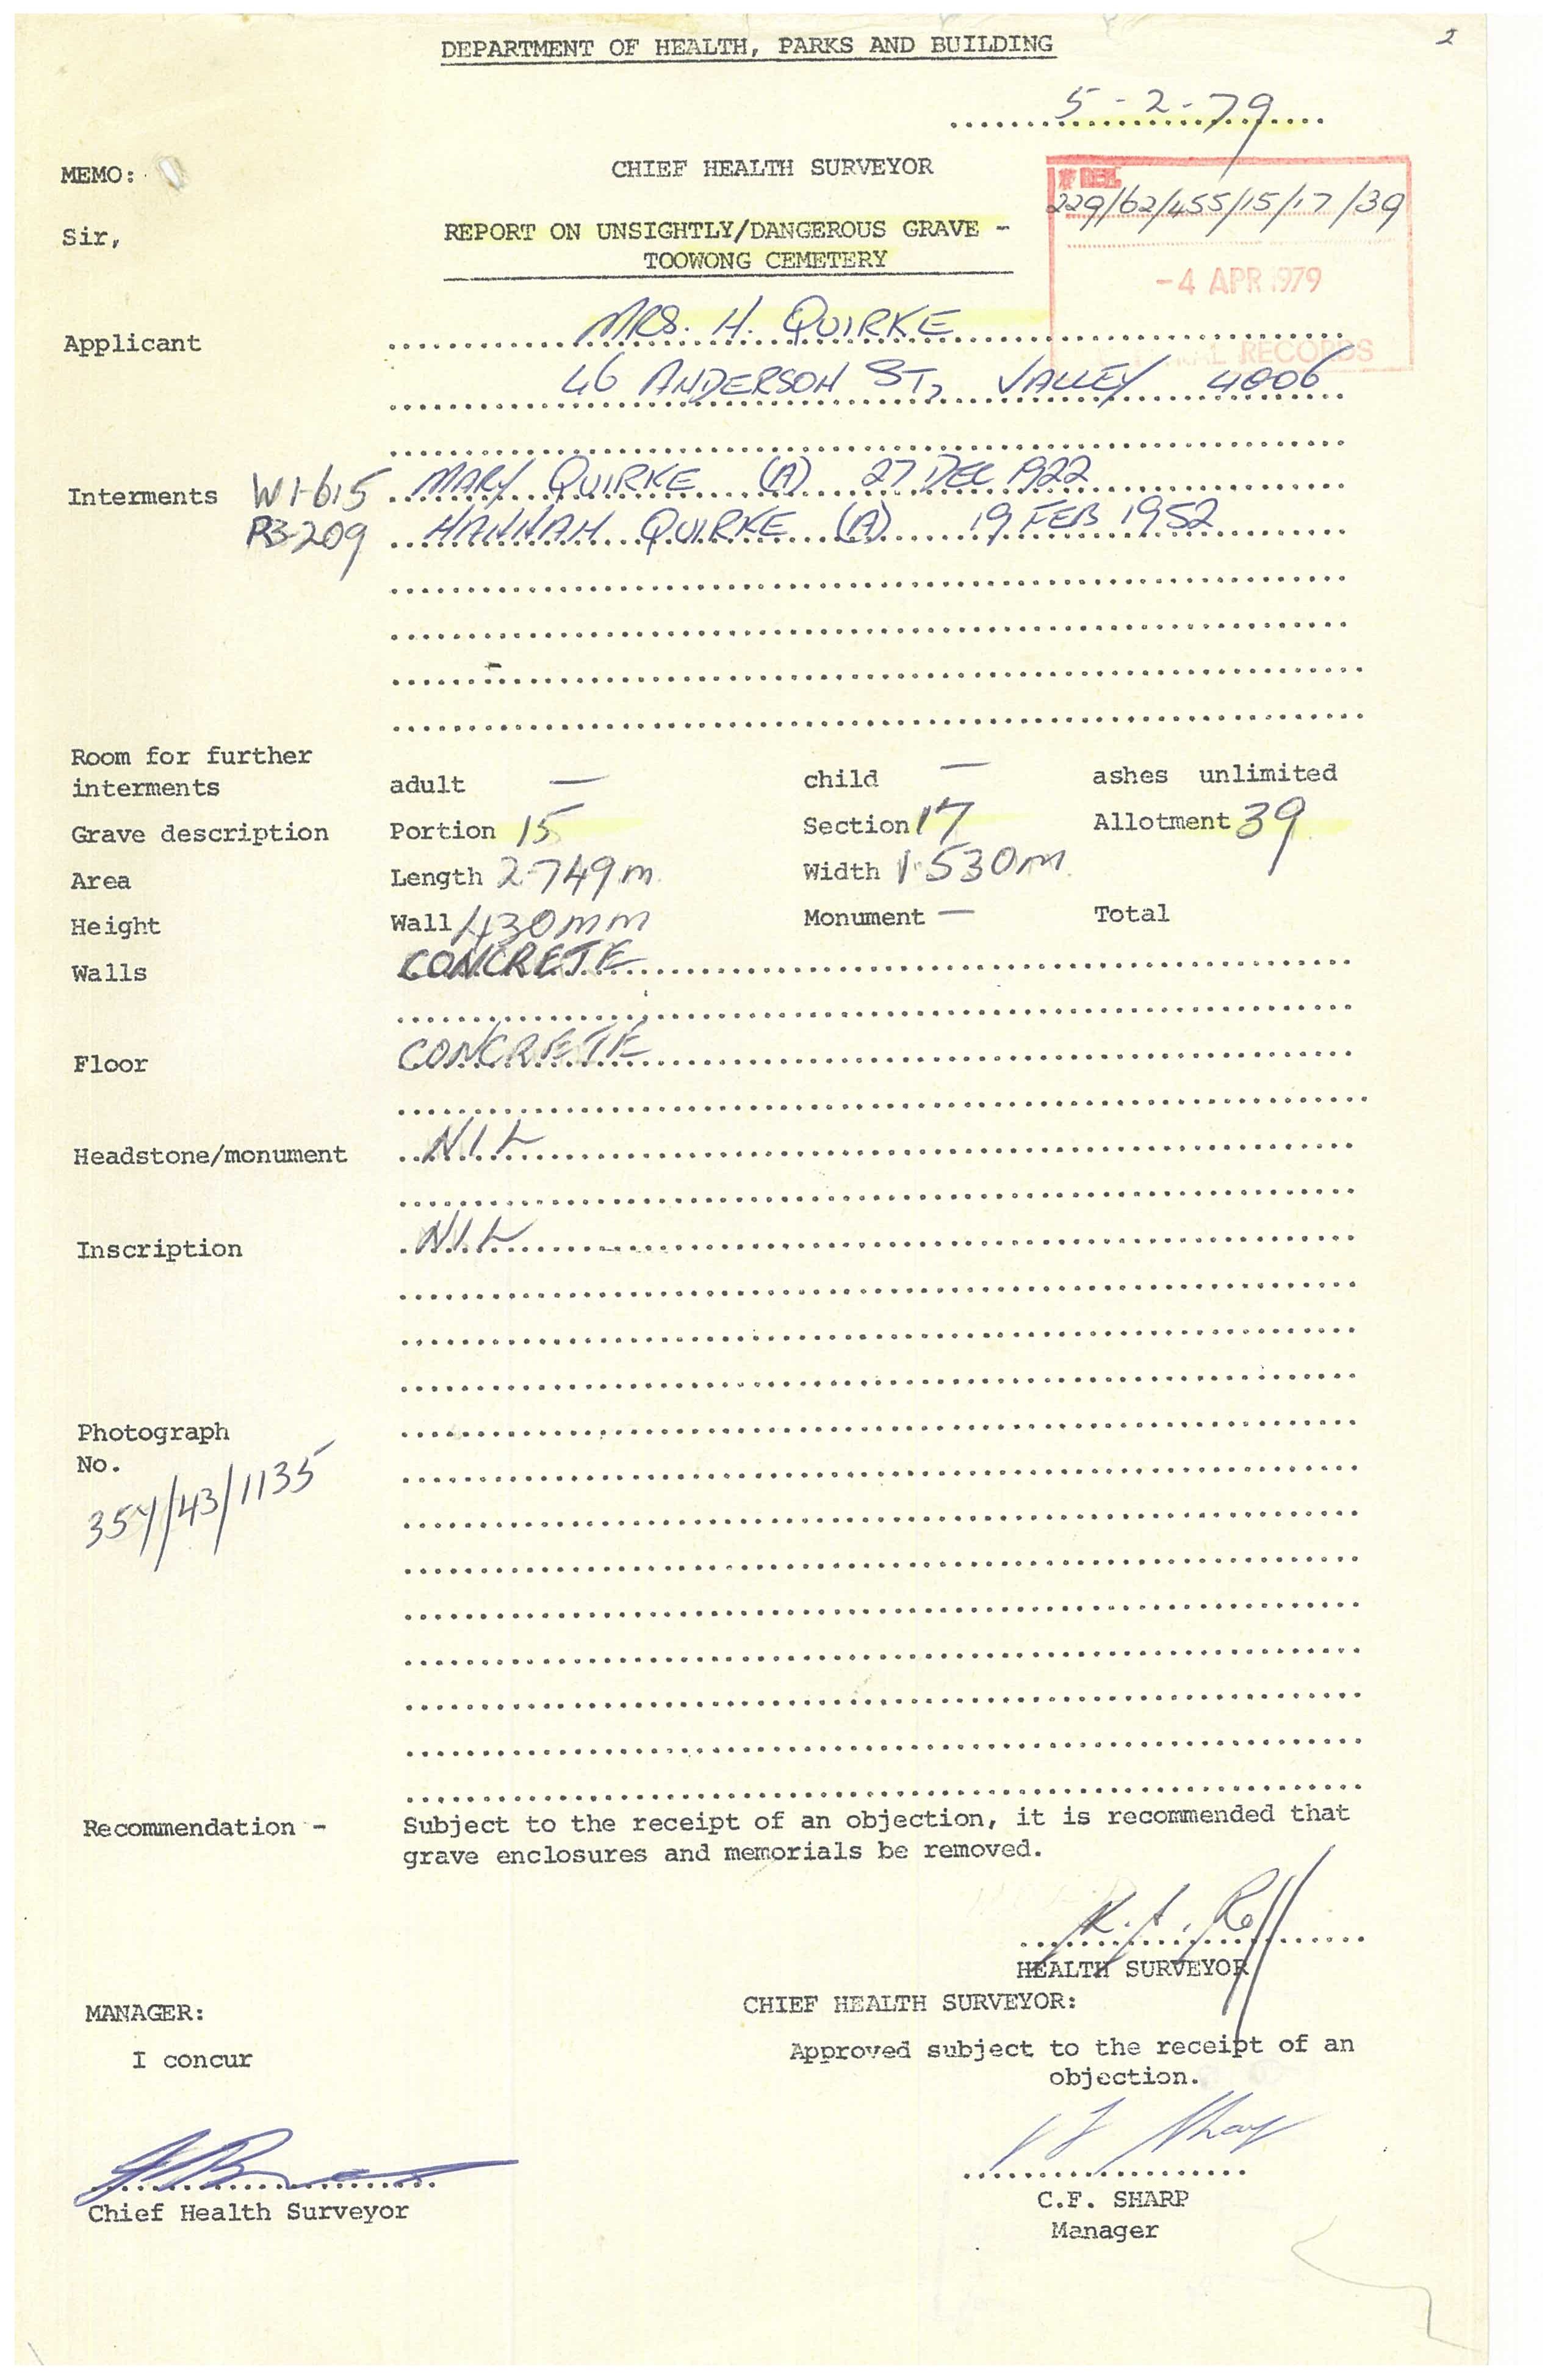 2
DEPARTMENT OF HEALTH, PARKS AND BUILDING
5-2-79
MEMO: CHIEF HEALTH SURVEYOR
229/62/455/15/17/39
Sir, REPORT ON UNSIGHTLY/DANGEROUS GRAVE -
TOOWONG CEMETERY
-4 APR 1979
RECORDS
Applicant MRS. H. QUIRKE
46 ANDERSON ST, VALLEY 4006
Interments W1-615 MARY QUIRKE (A) 27 DEC 1922
R3-209 HANNAH QUIRKE (A) 19 FEB 1952
Room for further
interments adult — child — ashes unlimited
Grave description Portion 15 Section 17 Allotment 39
Area Length 2.749m. Width 1.530m.
Height Wall 430mm Monument — Total
Walls CONCRETE
Floor CONCRETE
Headstone/monument NIL
Inscription NIL
Photograph
No.
354/43/1135
Recommendation - Subject to the receipt of an objection, it is recommended that
grave enclosures and memorials be removed.
HEALTH SURVEYOR
MANAGER: CHIEF HEALTH SURVEYOR:
I concur Approved subject to the receipt of an
objection.
Chief Health Surveyor C.F. SHARP
Manager